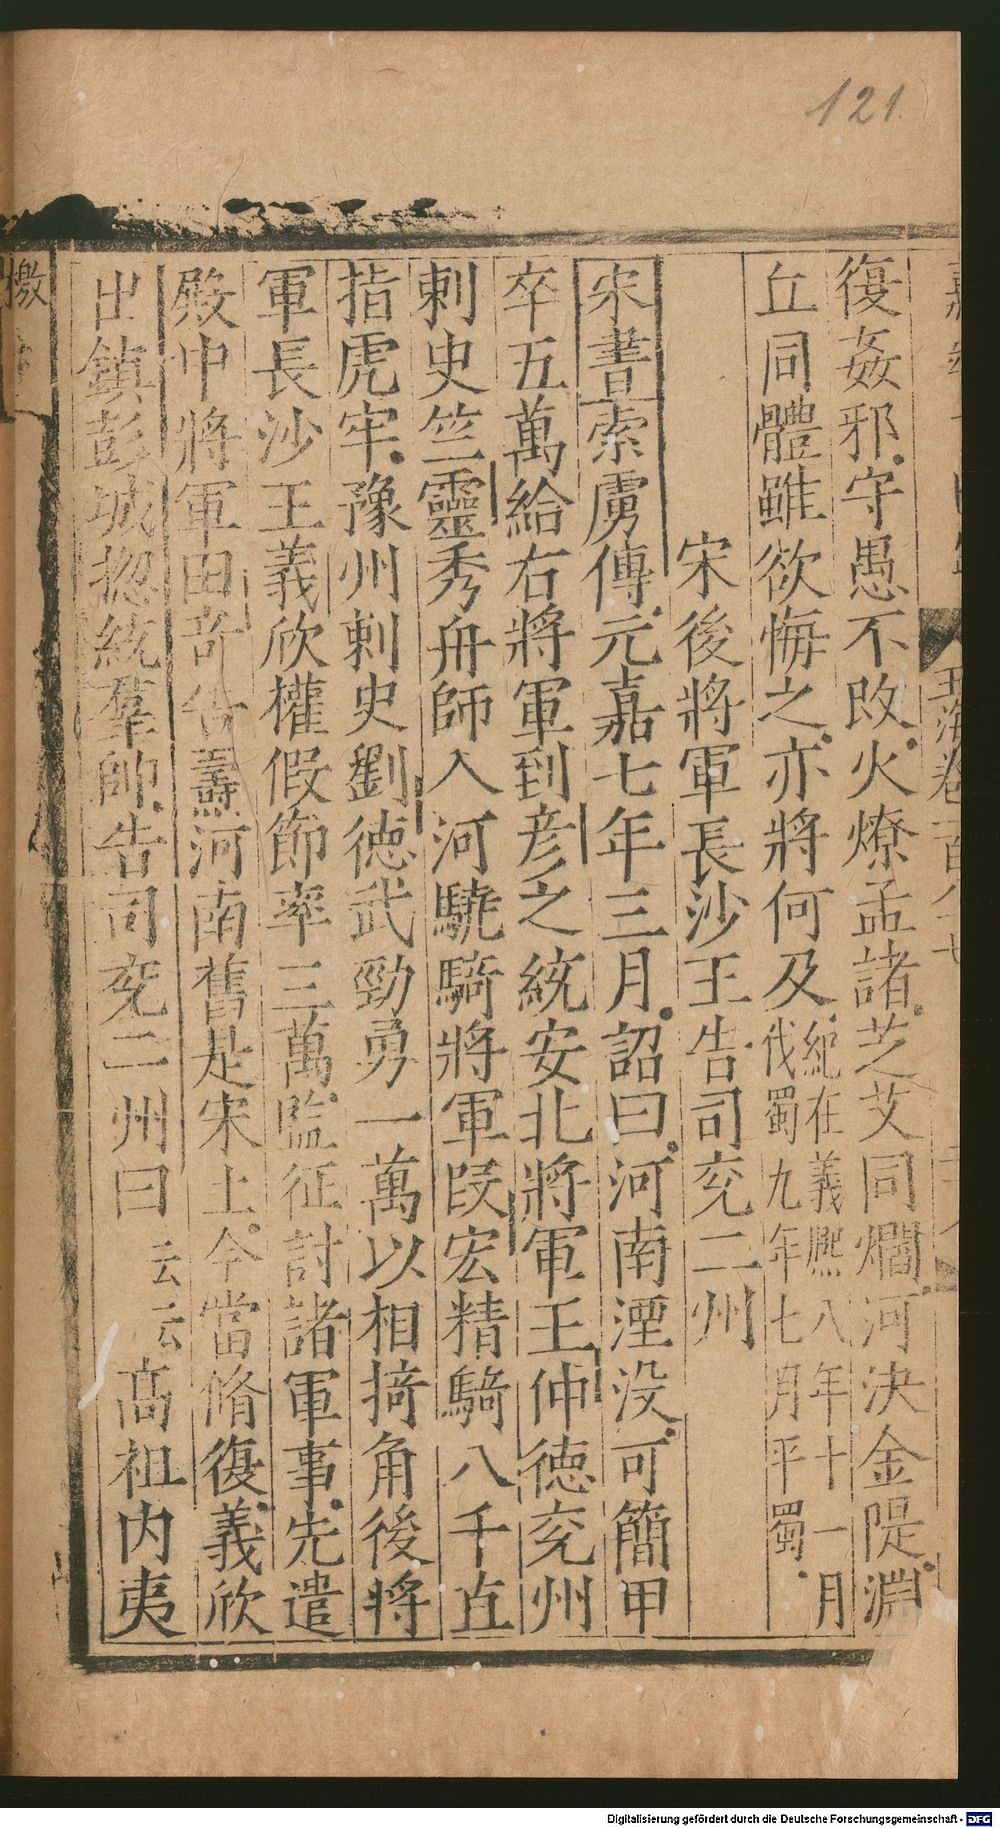 121.
玉海卷一百八十七
復姦邪守愚不改火燎孟諸芝艾同爛河決金隄淵
丘同體雖欲悔之亦將何及紀在義熙八年十一月伐蜀九年七月平蜀
宋後將軍長沙王告司兖二州
宋書索虜傳元嘉七年三月詔曰河南湮没可簡甲
卒五萬給右將軍到彦之統安北將軍王仲徳兖州
刺史竺靈秀舟師入河驍騎將軍段宏精騎八千直
指虎牢豫州刺史劉徳武勁勇一萬以相掎角後將
軍長沙王義欣權假節率三萬監征討諸軍事先遣
殿中將軍田奇告燾河南舊是宋土今當脩復義欣
出鎮彭城揔統羣帥告司兖二州曰云云高祖内夷
檄
Digitalisierung gefördert durch die Deutsche Forschungsgemeinschaft - DFG